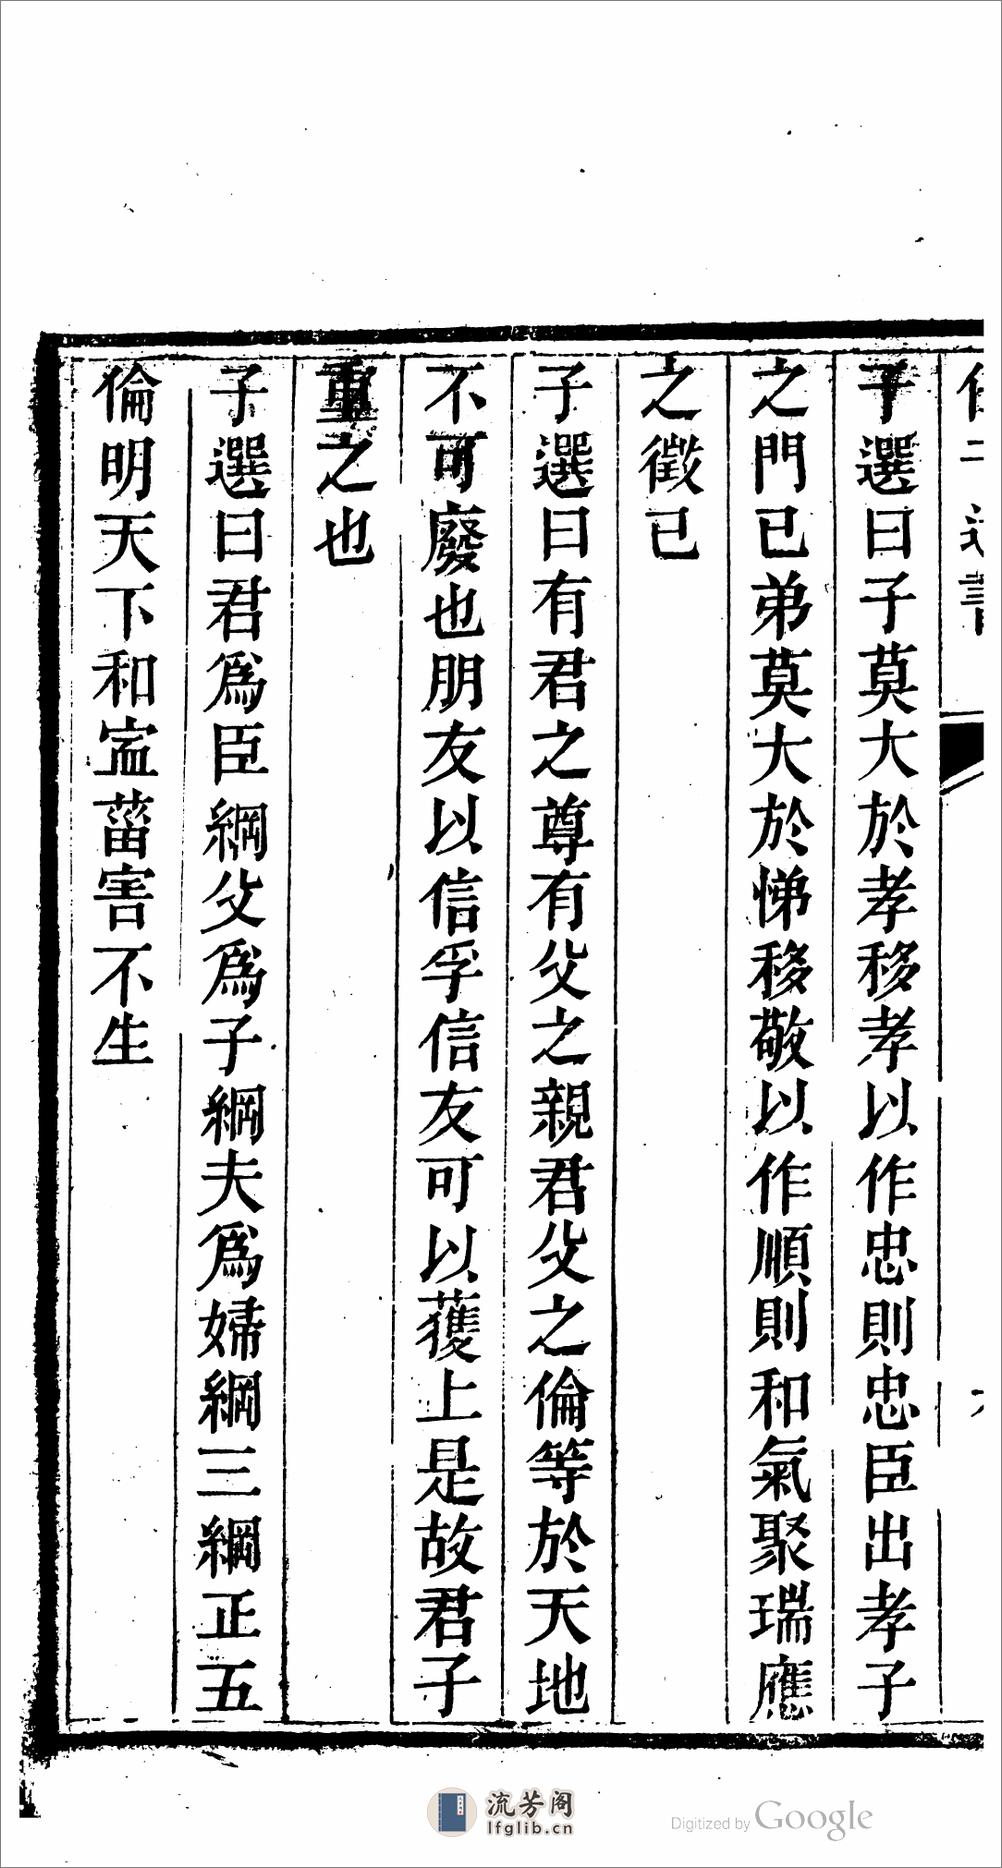 子選曰子莫大於孝移孝以作忠則忠臣出孝子
之門已弟莫大於悌移敬以作順則和氣聚瑞應
之徵已
子選曰有君之尊有父之親君父之倫等於天地
不可廢也朋友以信孚信友可以獲上是故君子
重之也
子選曰君爲臣綱父爲子綱夫爲婦綱三綱正五
倫明天下和寍菑害不生
流芳阁
lfglib.cn
Digitized by Google